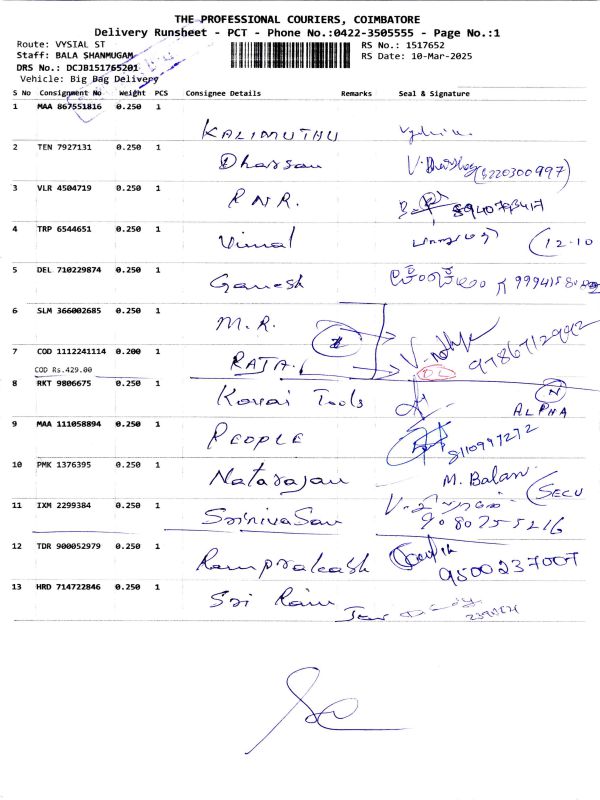 THE PROFESSIONAL COURIERS, COIMBATORE
Delivery Runsheet - PCT - Phone No.:0422-3505555 - Page No.:1
Route: VYSIAL ST
RS No.: 1517652
Staff: BALA SHANMUGAM
RS Date: 10-Mar-2025
DRS No.: DCJB151765201
Vehicle: Big Bag Delivery
S No Consignment No Weight PCS Consignee Details Remarks Seal & Signature
1 MAA 867551816 0.250 1
KALIMUTHU
2 TEN 7927131 0.250 1
Dharsan (8220300997)
3 VLR 4504719 0.250 1
RNR.
4 TRP 6544651 0.250 1
Vimal (12-10
5 DEL 710229874 0.250 1
Ganesh
6 SLM 366002685 0.250 1
M.R.
7 COD 1112241114 0.200 1
COD Rs.429.00
RAJA. 9786712992
8 RKT 9806675 0.250 1
Kovai Tools ALPHA
9 MAA 111058894 0.250 1
PEOPLE 8110997272
10 PMK 1376395 0.250 1
Natarajan M. Balan
11 IXM 2299384 0.250 1
Srinivasan 9080755216
(SECU
12 TDR 900052979 0.250 1
Ramprakash 9500237007
13 HRD 714722846 0.250 1
Sri Ram